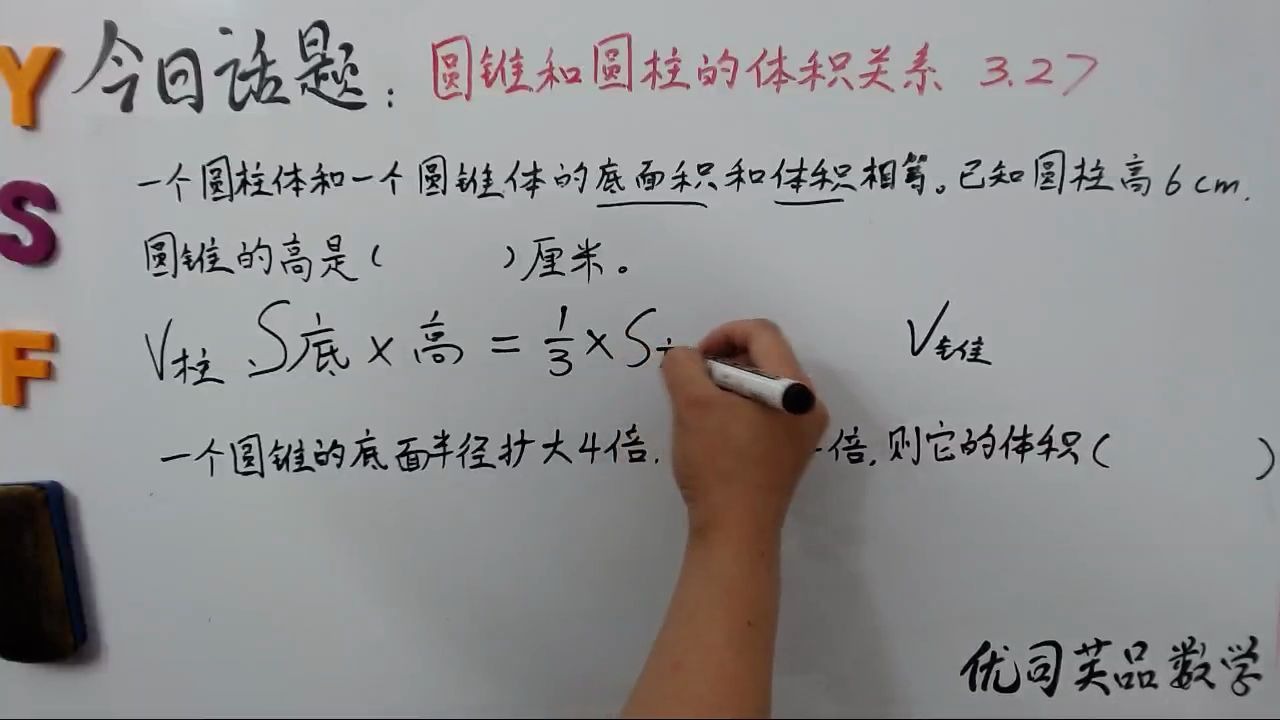 今日话题: 圆锥和圆柱的体积关系 3.27
一个圆柱体和一个圆锥体的底面积和体积相等。已知圆柱高6cm.
圆锥的高是( )厘米。
V柱 S底×高=1/3×S V锥
一个圆锥的底面半径扩大4倍. 倍,则它的体积( )
优司英品数学
Y
S
F